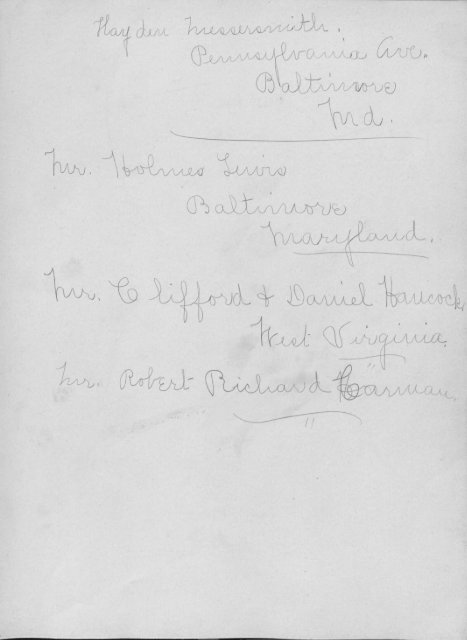 Hayden Messersmith.
Pennsylvania Ave.
Baltimore
Md.
Mr. Holmes Lewis
Baltimore
Maryland.
Mr. Clifford & Daniel Haucock,
West Virginia.
Mr. Robert Richard Harman.